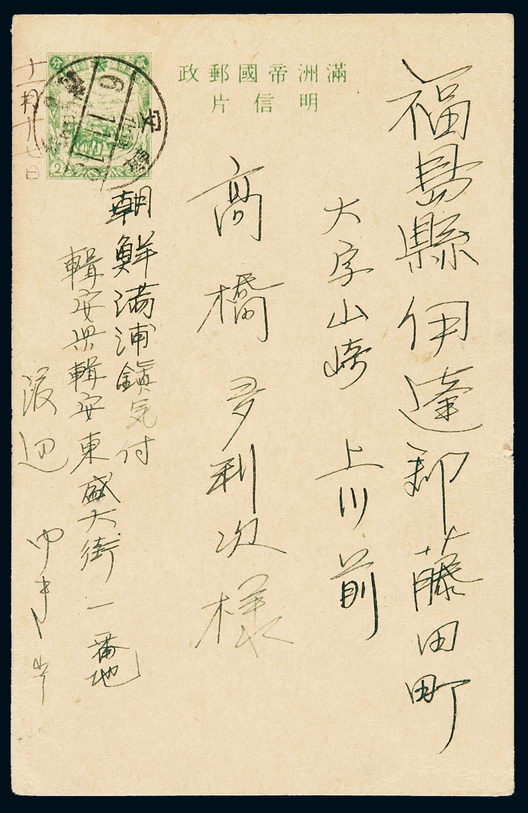 滿洲帝國郵政
明信片
福島縣伊達郡藤田町
大字山崎 上川前
高橋多利次様
朝鮮満浦鎮気付
輯安県輯安東盛大街一番地
渡辺
十一月十七日